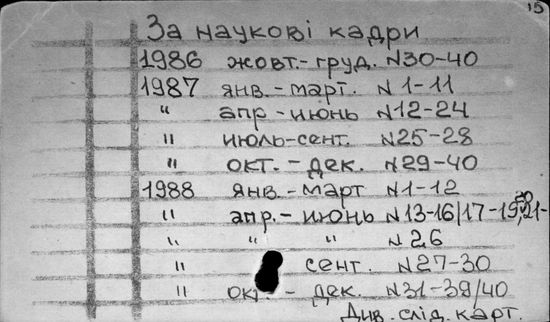 15
За наукові кадри
1986 жовт.-груд. N30-40
1987 янв.-март. N1-11
" апр-июнь N12-24
" июль-сент. N25-28
" окт.-дек. N29-40
1988 янв.-март N1-12
" апр.-июнь N13-16/17-19,20,21-
" " " N26
" сент. N27-30
" окт.-дек. N31-39/40
Див. слід. карт.